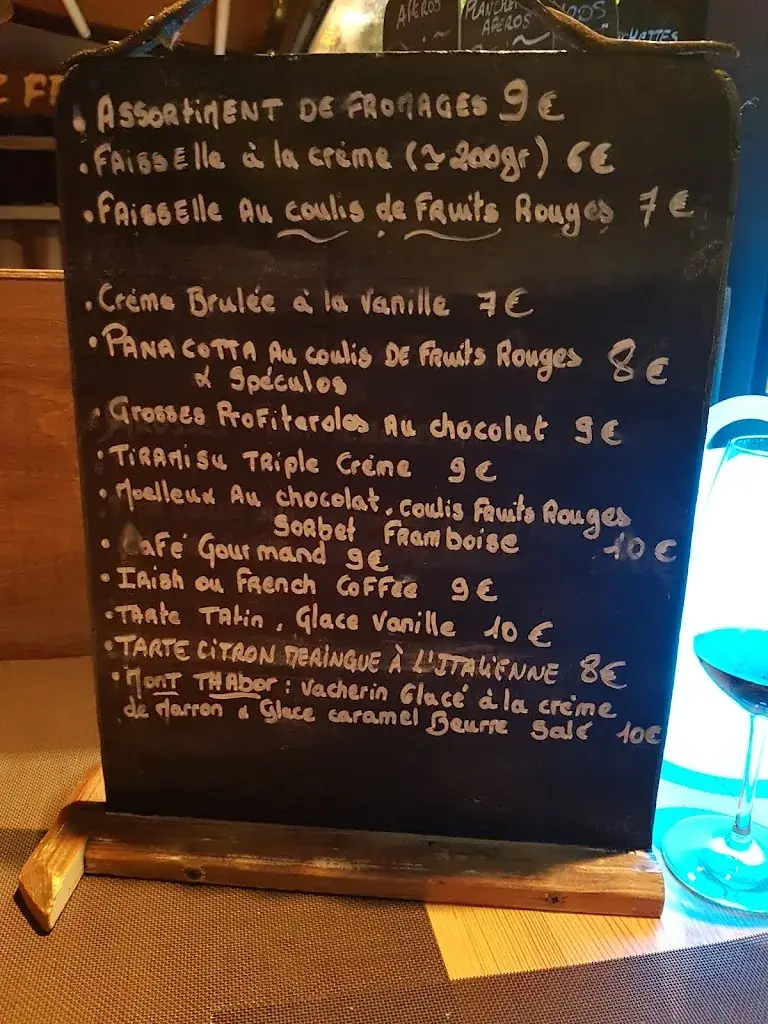 APÉROS
PLANCHES
APÉROS
ASSORTIMENT DE FROMAGES 9€
. FAISSElle à la crème (~ 200gr) 6€
. FAISSElle Au coulis de FRuits Rouges 7€
. Crème Brulée à la Vanille 7€
. PANA COTTA Au coulis DE FRuits Rouges 8€
& Spéculos
. GROSSES PROFiteroles Au chocolat 9€
. TiRAMiSU TRiple Crème 9€
. Moelleux Au chocolat, coulis FRuits Rouges
SORBet FRamboise 10€
. CaFé Gourmand 9€
. IRish ou FRench CoFFee 9€
. TARte TAtin, Glace Vanille 10€
. TARTE CiTRON MERINGUE À L'ITALiENNE 8€
. MonT THAbor : Vacherin Glacé à la crème
de Marron & Glace caramel Beurre Salé 10€